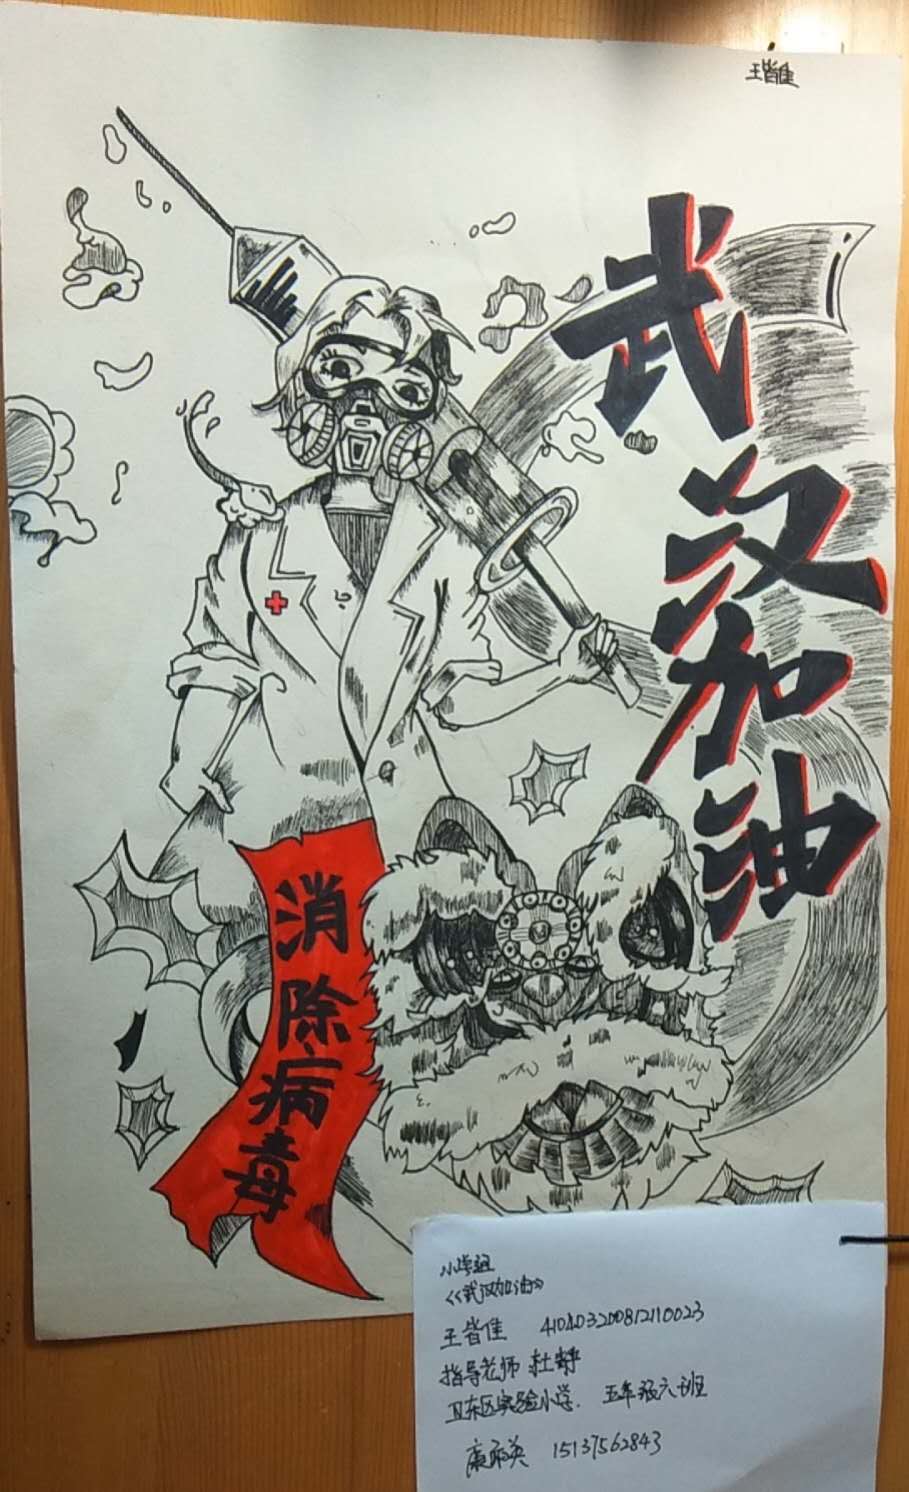 王皆佳
武汉加油
消除病毒
小学组
《武汉加油》
王皆佳 410403200812110023
指导老师 杜静
卫东区实验小学. 五年级六班
15137562843